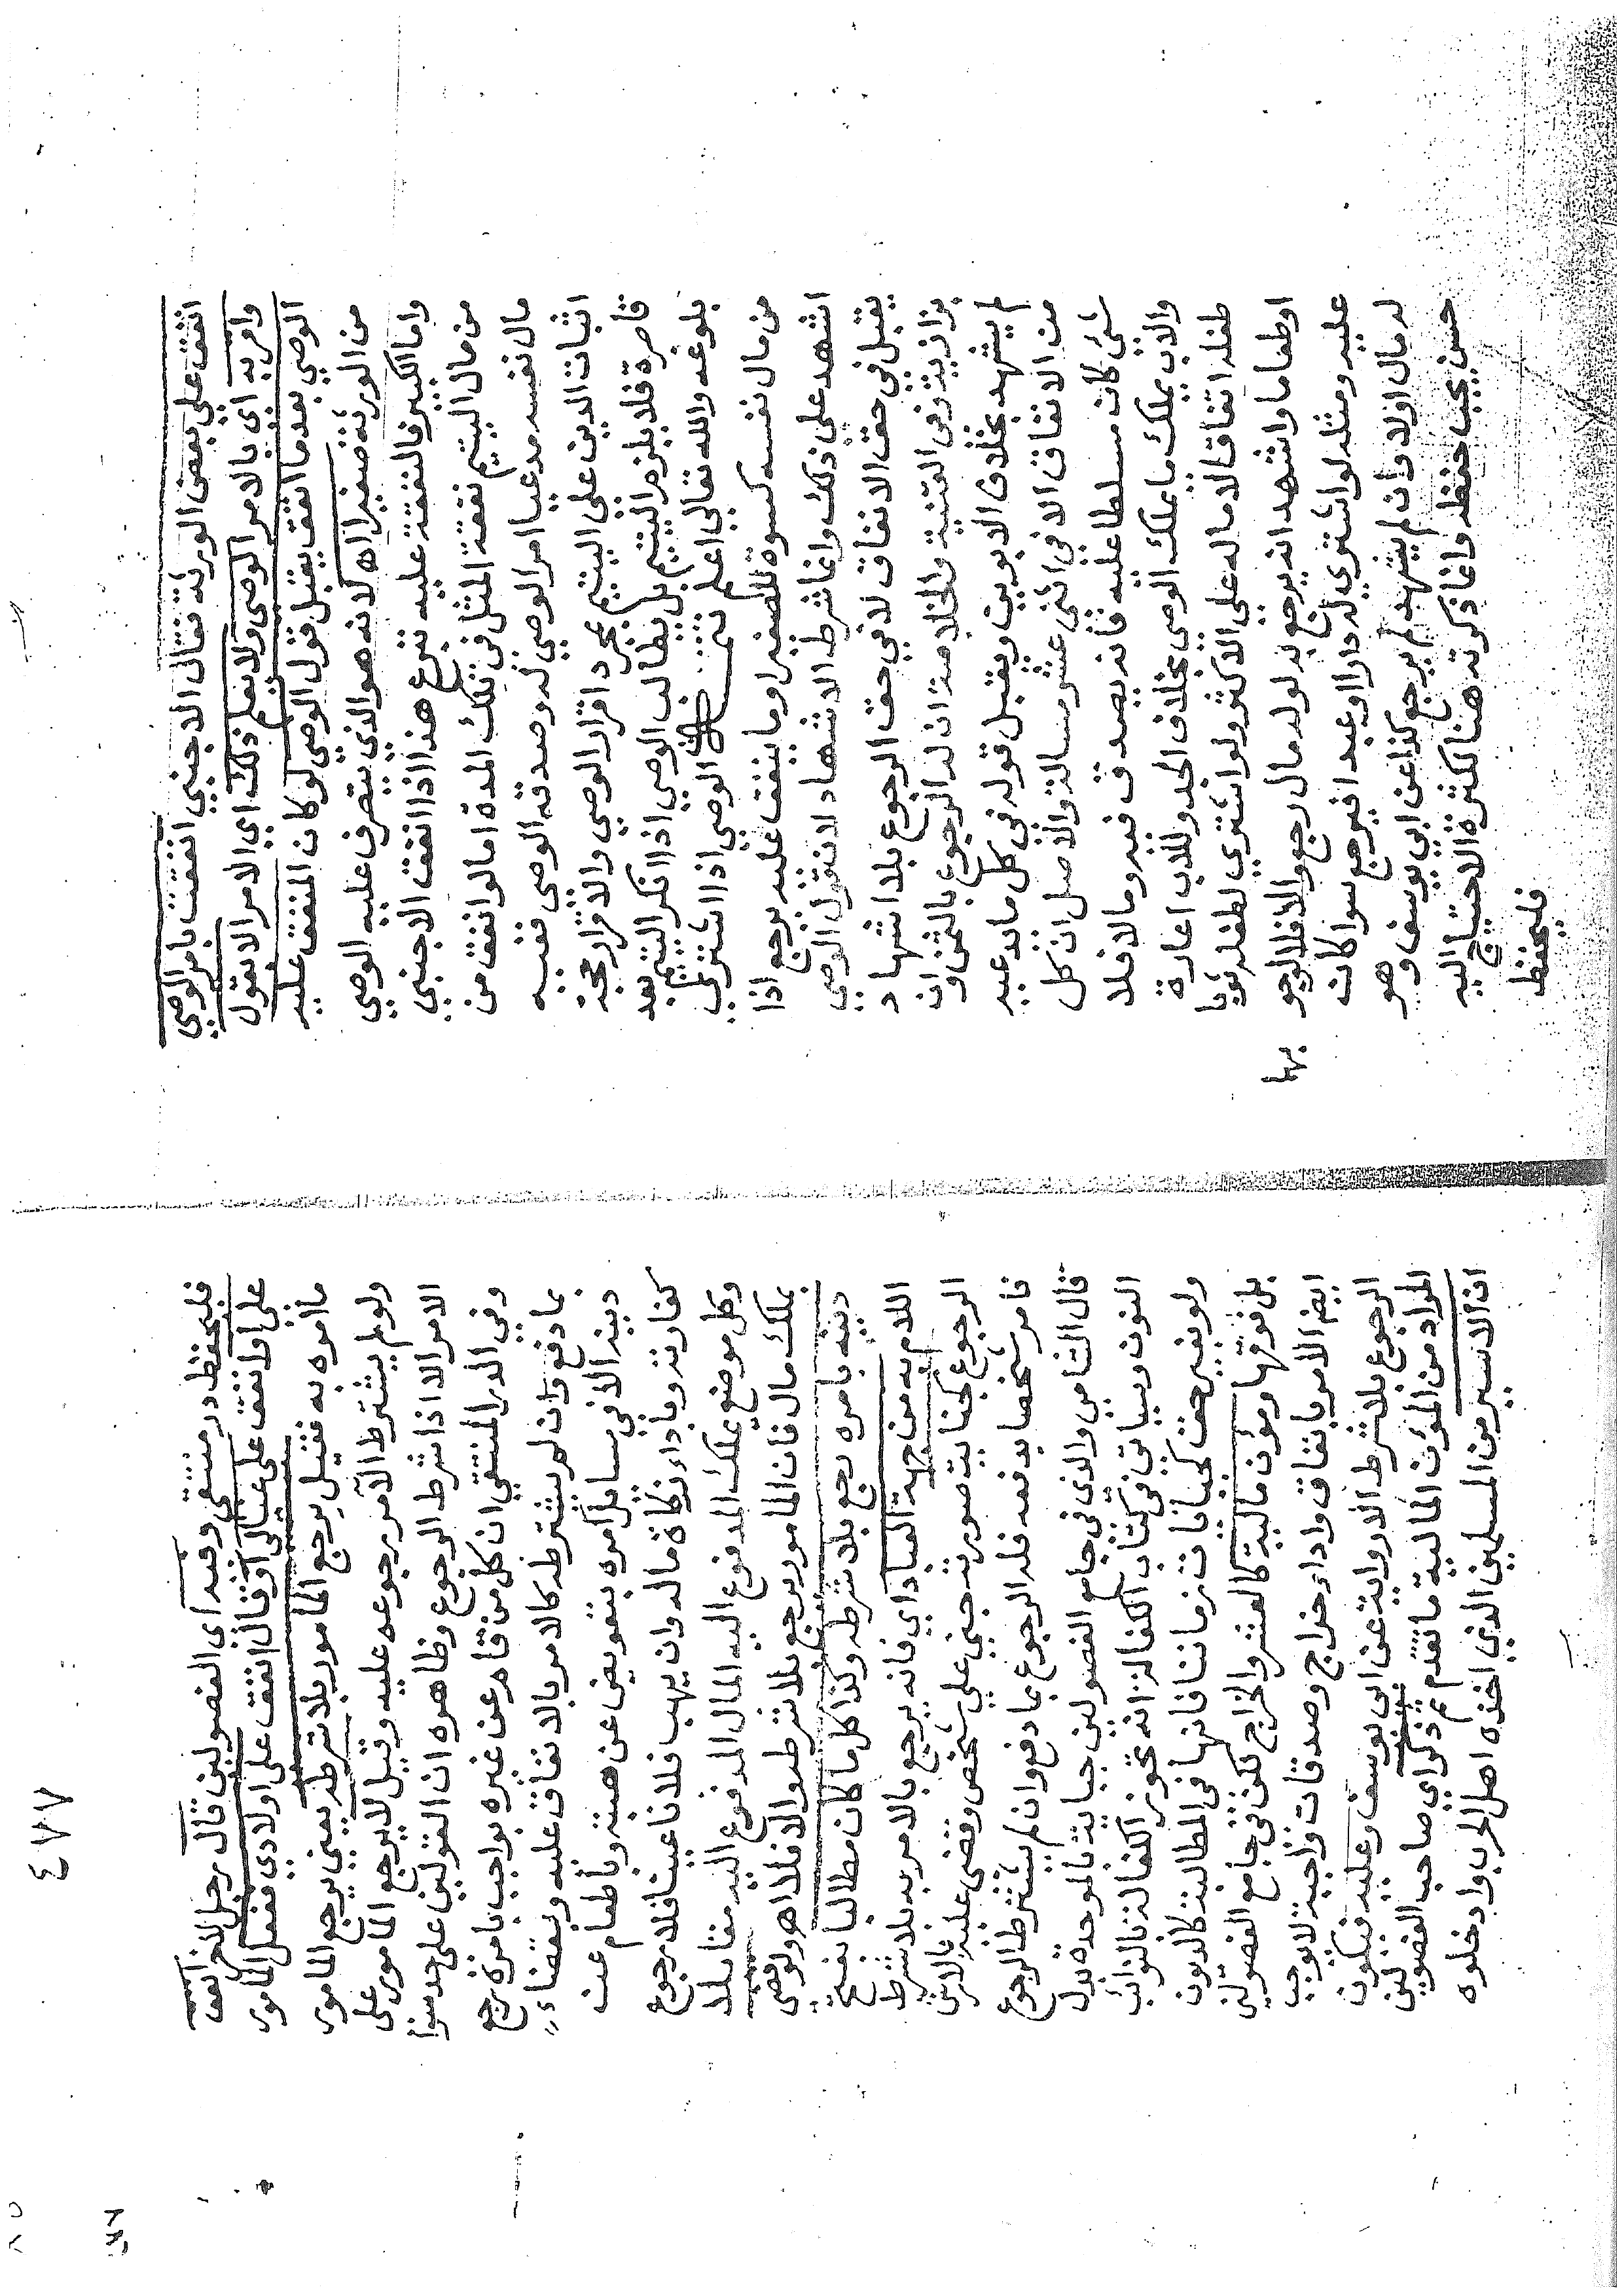 انفق على بعض الورثة فقال الاجنبي انفقت بامر الوصي
واقر به اي بالامر الوصي ولا يعلم ذلك اي الامر الا بقول
الوصي بعد ما انفق يقبل قول الوصي لو كان المنفق عليه
من الورثة صغيرا اه لانه هو الذي يتصرف عليه الوصي
واما الكبير فالنفقة عليه تبرع هذا اذا انفق الاجنبي
من مال اليتيم نفقة المثل في تلك المدة اما لو انفق من
مال نفسه مدعيا امر الوصي له وصدقه الوصي ففيه
اثبات الدين على اليتيم بمجرد اقرار الوصي والاقرار حجة
قاصرة فلا يلزم اليتيم بل يطالب الوصي اذا انكر اليتيم بعد
بلوغه والله تعالى اعلم ثم الوصي اذا اشترى
من مال نفسه كسوة للصغير او ما ينفق عليه يرجع اذا
اشهد على ذلك وانما شرط الاشهاد لان قول الوصي
يقبل في حق الانفاق لا في حق الرجوع بلا اشهاد
بزازية وفي القنية والخلاصة ان له الرجوع بالثمن وان
لم يشهد بخلاف الابوين ويقبل قوله في كل ما يدعيه
من الانفاق الا في اثني عشر مسالة والاصل ان كل
شئ كان مسلطا عليه فانه يصدق فيه وما لا فلا
والاب يملك ما يملك الوصي بخلاف الجد وللاب اعارة
طفله اتفاقا لا ماله على الاكثر ولو اشترى لطفله ثوبا
او طعاما واشهد انه يرجع به لو له مال رجع والا فلا لوجو بهما
عليه ومثله لو اشترى له دارا او عبدا فيرجع سوا كان
له مال او لا وان لم يشهد لم يرجع كذا عن ابي يوسف وهو
حسن يجب حفظه وانما ذكرته هنا لكثرة الاحتياج اليه
فليحفظ
٤٧٧
فليحفظ در منتقى وفيه اى الفصولين قال رجل لاخر انفق
على او انفق على عيالى او قال انفق على اولادي ففعل المامور
ما امره به فقيل يرجع المامور بلا شرطه يعني يرجع المامور
ولو لم يشترط الآمر رجوعه عليه وقيل لا يرجع المامور على
الامر الا اذا شرط الرجوع وظاهره ان القولين على حد سوا
وفي الدر المنتقى ان كل من قام عن غيره بواجب بامره رجع
بما دفع وان لم يشترطه كالامر بالانفاق عليه وبقضاء
دينه الا في مسايل امره بتعويض عن هبته وباطعام عن
كفارته وباداء زكاة ماله وان يهب فلانا عينا فلا رجوع
وكل موضع يملك المدفوع اليه المال المدفوع اليه مقابلا
بملك مال فان المامور يرجع بلا شرطه والا فلا اه ولو قضى
دينه بامره رجع بلا شرطه وكذا كل ما كان مطالبا بفتح
اللام به من جهة العباد اي فانه يرجع بالامر به بلا شرط
الرجوع كجناية صورته جنى على شخص وقضى عليه بالارش
فامر شخصا بدفعه فله الرجوع بما دفع وان لم يشترط الرجوع
قال الشامي والذي في جامع الفصولين جباية بالموحدة بدل
النون وسياتي في كتاب الكفالة انه تجوز الكفالة بالنوائب
ولو بغير حق كجبايات زماننا فانها في المطالبة كالديون
بل فوقها ومؤن مالية كالعشر والخراج لكن في جامع الفصولين
ايضا الامر بانفاق واداء خراج وصدقات واجبة لا يوجب
الرجوع بلا شرط الا رواية عن ابي يوسف وعليه فيكون
المراد من المؤن المالية ما تقدم ثم ذكر اي صاحب الفصولين
ان الاسير من المسلمين الذي اخذه اهل الحرب وادخلوه